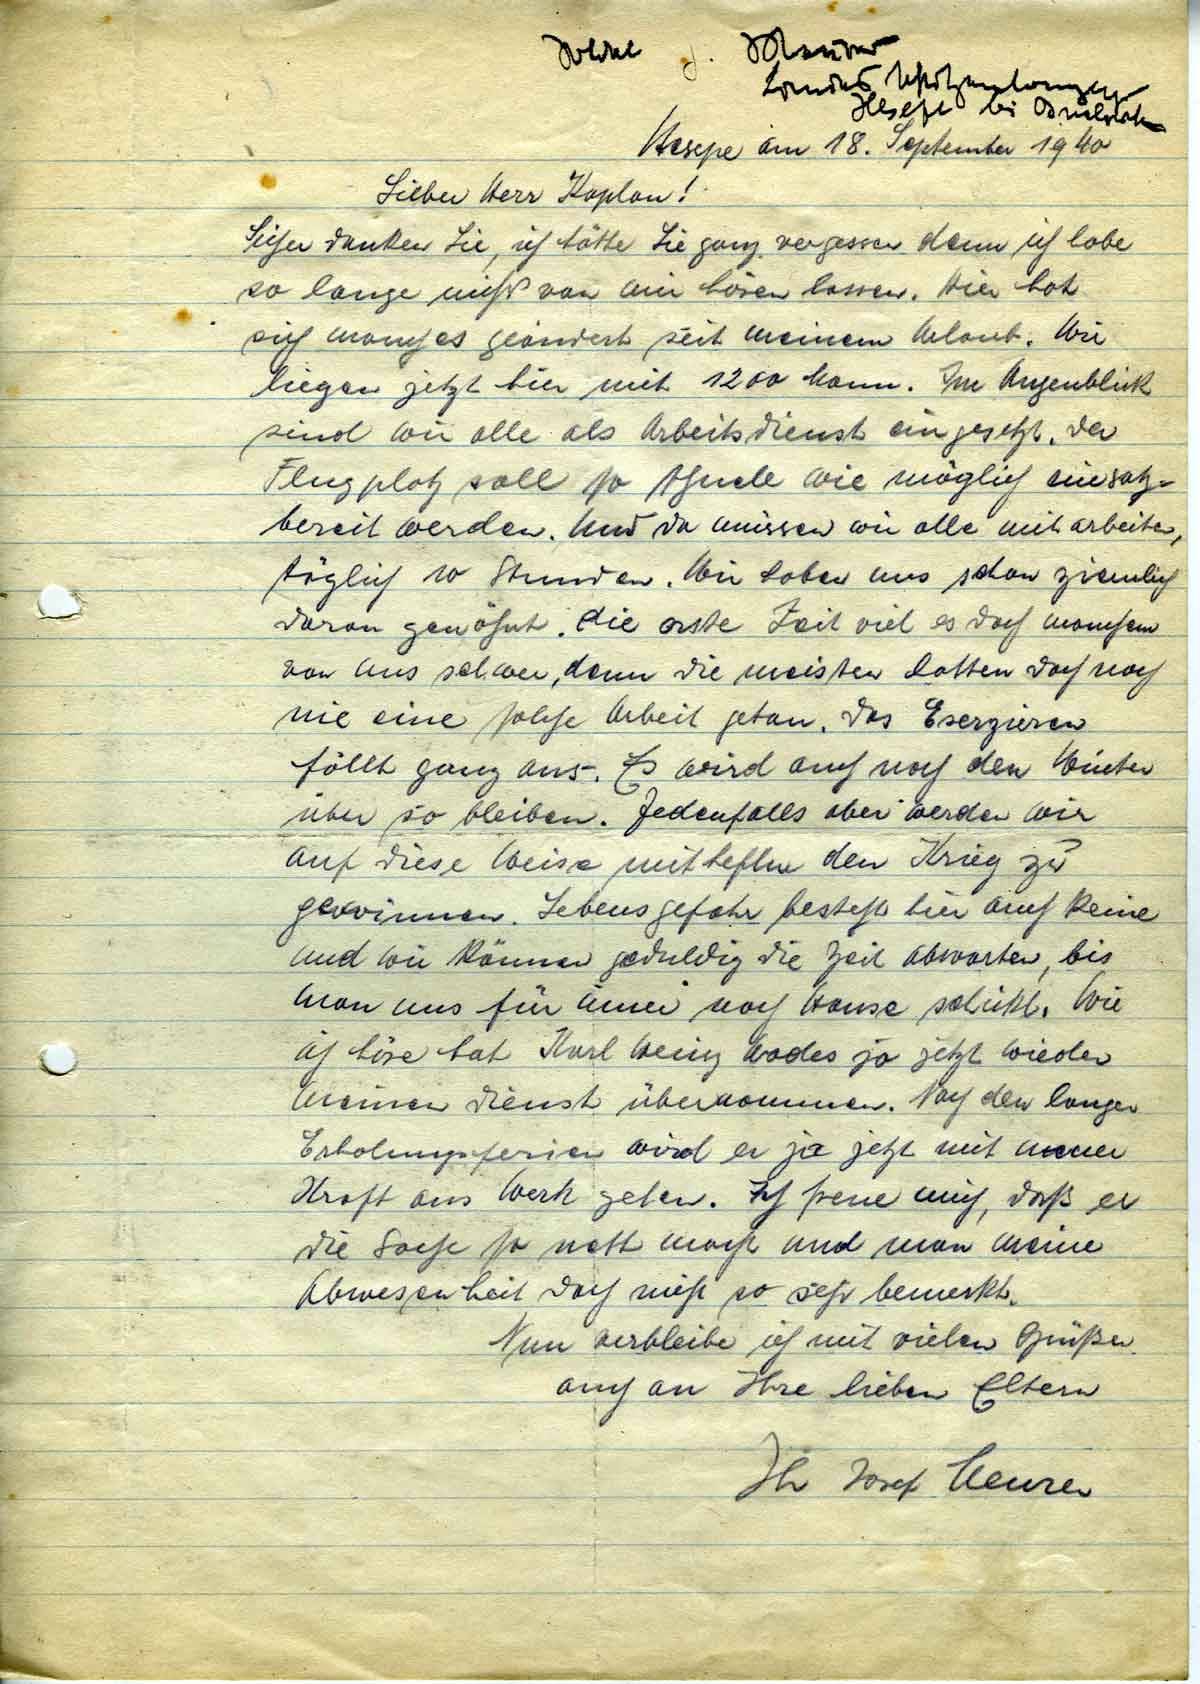 Hesepe am 18. September 1940
Lieber Herr Kaplan!
Sicher danken Sie, ich hätte Sie ganz vergessen denn ich habe
so lange nichts von mir hören lassen. Hier hat
sich manches geändert seit meinem Urlaub. Wir
liegen jetzt hier mit 1200 Mann. Im Augenblick
sind wir alle als Arbeitsdienst eingesetzt. Der
Flugplatz soll so schnell wie möglich einsatz-
bereit werden. Und da müssen wir alle mitarbeiten,
täglich 10 Stunden. Wir haben uns schon ziemlich
daran gewöhnt. Die erste Zeit viel es doch manchem
von uns schwer, denn die meisten hatten doch noch
nie eine solche Arbeit getan. Das Exerzieren
fällt ganz aus. Es wird auch noch den Winter
über so bleiben. Jedenfalls aber werden wir
auf diese Weise mithelfen den Krieg zu
gewinnen. Lebensgefahr besteht hier auch keine
und wir können geduldig die Zeit abwarten, bis
man uns für immer nach Hause schickt. Wie
ich höre hat Karl Heinz ja jetzt wieder
meinen Dienst übernommen. Nach den langen
Erholungsferien wird er ja jetzt mit neuer
Kraft ans Werk gehen. Ich freue mich, daß er
die Sache so nett macht und man meine
Abwesenheit doch nicht so sehr bemerkt.
Nun verbleibe ich mit vielen Grüßen
auch an Ihre lieben Eltern
Ihr Josef Meurer